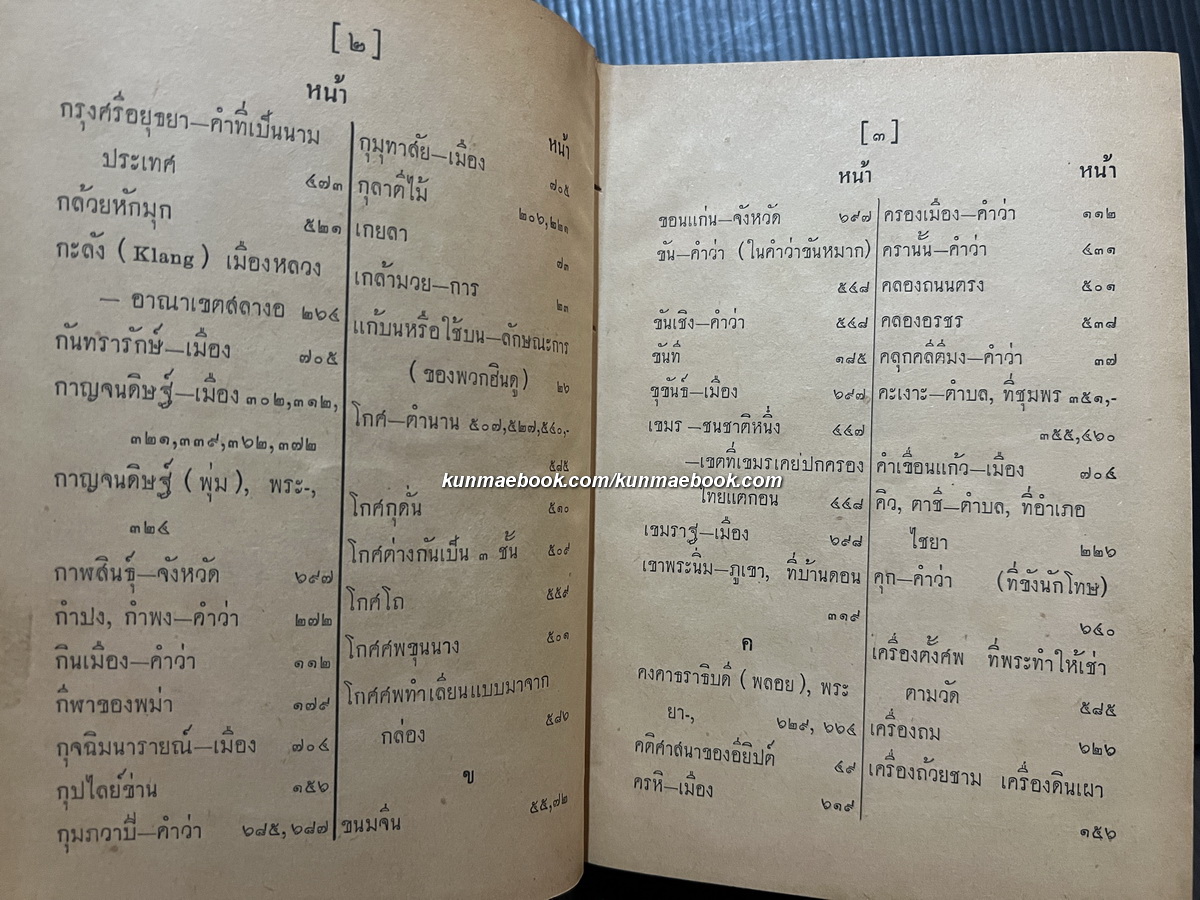 [ ๒ ]
หน้า
กรุงศรีอยุธยา—คำที่เป็นนาม
ประเทศ ๔๗๓
กล้วยหักมุก ๕๒๑
กะลัง ( Klang ) เมืองหลวง
— อาณาเขตสลางอ ๒๖๔
กันทรารักษ์—เมือง ๗๐๕
กาญจนดิษฐ์—เมือง ๓๐๒,๓๑๒,
๓๒๑,๓๓๙,๓๖๒,๓๗๒
กาญจนดิษฐ์ ( พุ่ม ), พระ-,
๓๒๔
กาฬสินธุ์—จังหวัด ๖๙๗
กำปง, กำพง—คำว่า ๒๗๒
กินเมือง—คำว่า ๑๑๒
กีฬาของพม่า ๑๗๙
กุจฉิมนารายณ์—เมือง ๗๐๔
กุปไลย์ข่าน ๑๕๖
กุมภวาปี—คำว่า ๖๘๕, ๖๘๗
หน้า
กุมุทาสัย—เมือง ๗๐๕
กุลาตีไม้ ๒๐๖,๒๒๑
เกยลา ๗๓
เกล้ามวย—การ ๒๓
แก้บนหรือใช้บน—ลักษณะการ
( ของพวกฮินดู ) ๒๖
โกศ—ตำนาน ๕๐๗,๕๒๗,๕๔๐,-
๕๘๕
โกศกุดั่น ๕๑๐
โกศต่างกันเป็น ๓ ชั้น ๕๐๙
โกศโถ ๕๕๙
โกศศพขุนนาง ๕๐๑
โกศศพทำเลียนแบบมาจาก
กล่อง ๕๘๖
ข
ขนมจีน ๕๕,๗๒
[ ๓ ]
หน้า
ขอนแก่น—จังหวัด ๖๙๗
ขัน—คำว่า (ในคำว่าขันหมาก)
๕๔๘
ขันเชิง—คำว่า ๕๔๘
ขันที ๑๘๕
ขุขันธ์—เมือง ๖๙๗
เขมร —ชนชาติหนึ่ง ๔๔๗
—เขตที่เขมรเคยปกครอง
ไทยแต่ก่อน ๔๔๘
เขมราฐ—เมือง ๖๙๘
เขาพระนิ่ม—ภูเขา, ที่บ้านดอน
๓๑๙
ค
คงคาธราธิบดี ( พลอย ), พระ
ยา-, ๖๒๙, ๖๖๔
คติศาสนาของอียิปต์ ๔๙
ครหิ—เมือง ๖๑๙
หน้า
ครองเมือง—คำว่า ๑๑๒
ครานั้น—คำว่า ๔๓๑
คลองถนนตรง ๕๐๑
คลองอรชร ๕๓๘
คลุกคลีตีมง—คำว่า ๓๗
คะเงาะ—ตำบล, ที่ชุมพร ๓๕๑,-
๓๕๕,๔๖๐
คำเขื่อนแก้ว—เมือง ๗๐๔
คิว, ตาชี—ตำบล, ที่อำเภอ
ไชยา ๒๒๖
คุก—คำว่า (ที่ขังนักโทษ)
๖๔๐
เครื่องตั้งศพ ที่พระทำให้เช่า
ตามวัด ๕๘๕
เครื่องถม ๖๒๖
เครื่องถ้วยชาม เครื่องดินเผา
๑๕๖
kunmaebook.com/kunmaebook.com